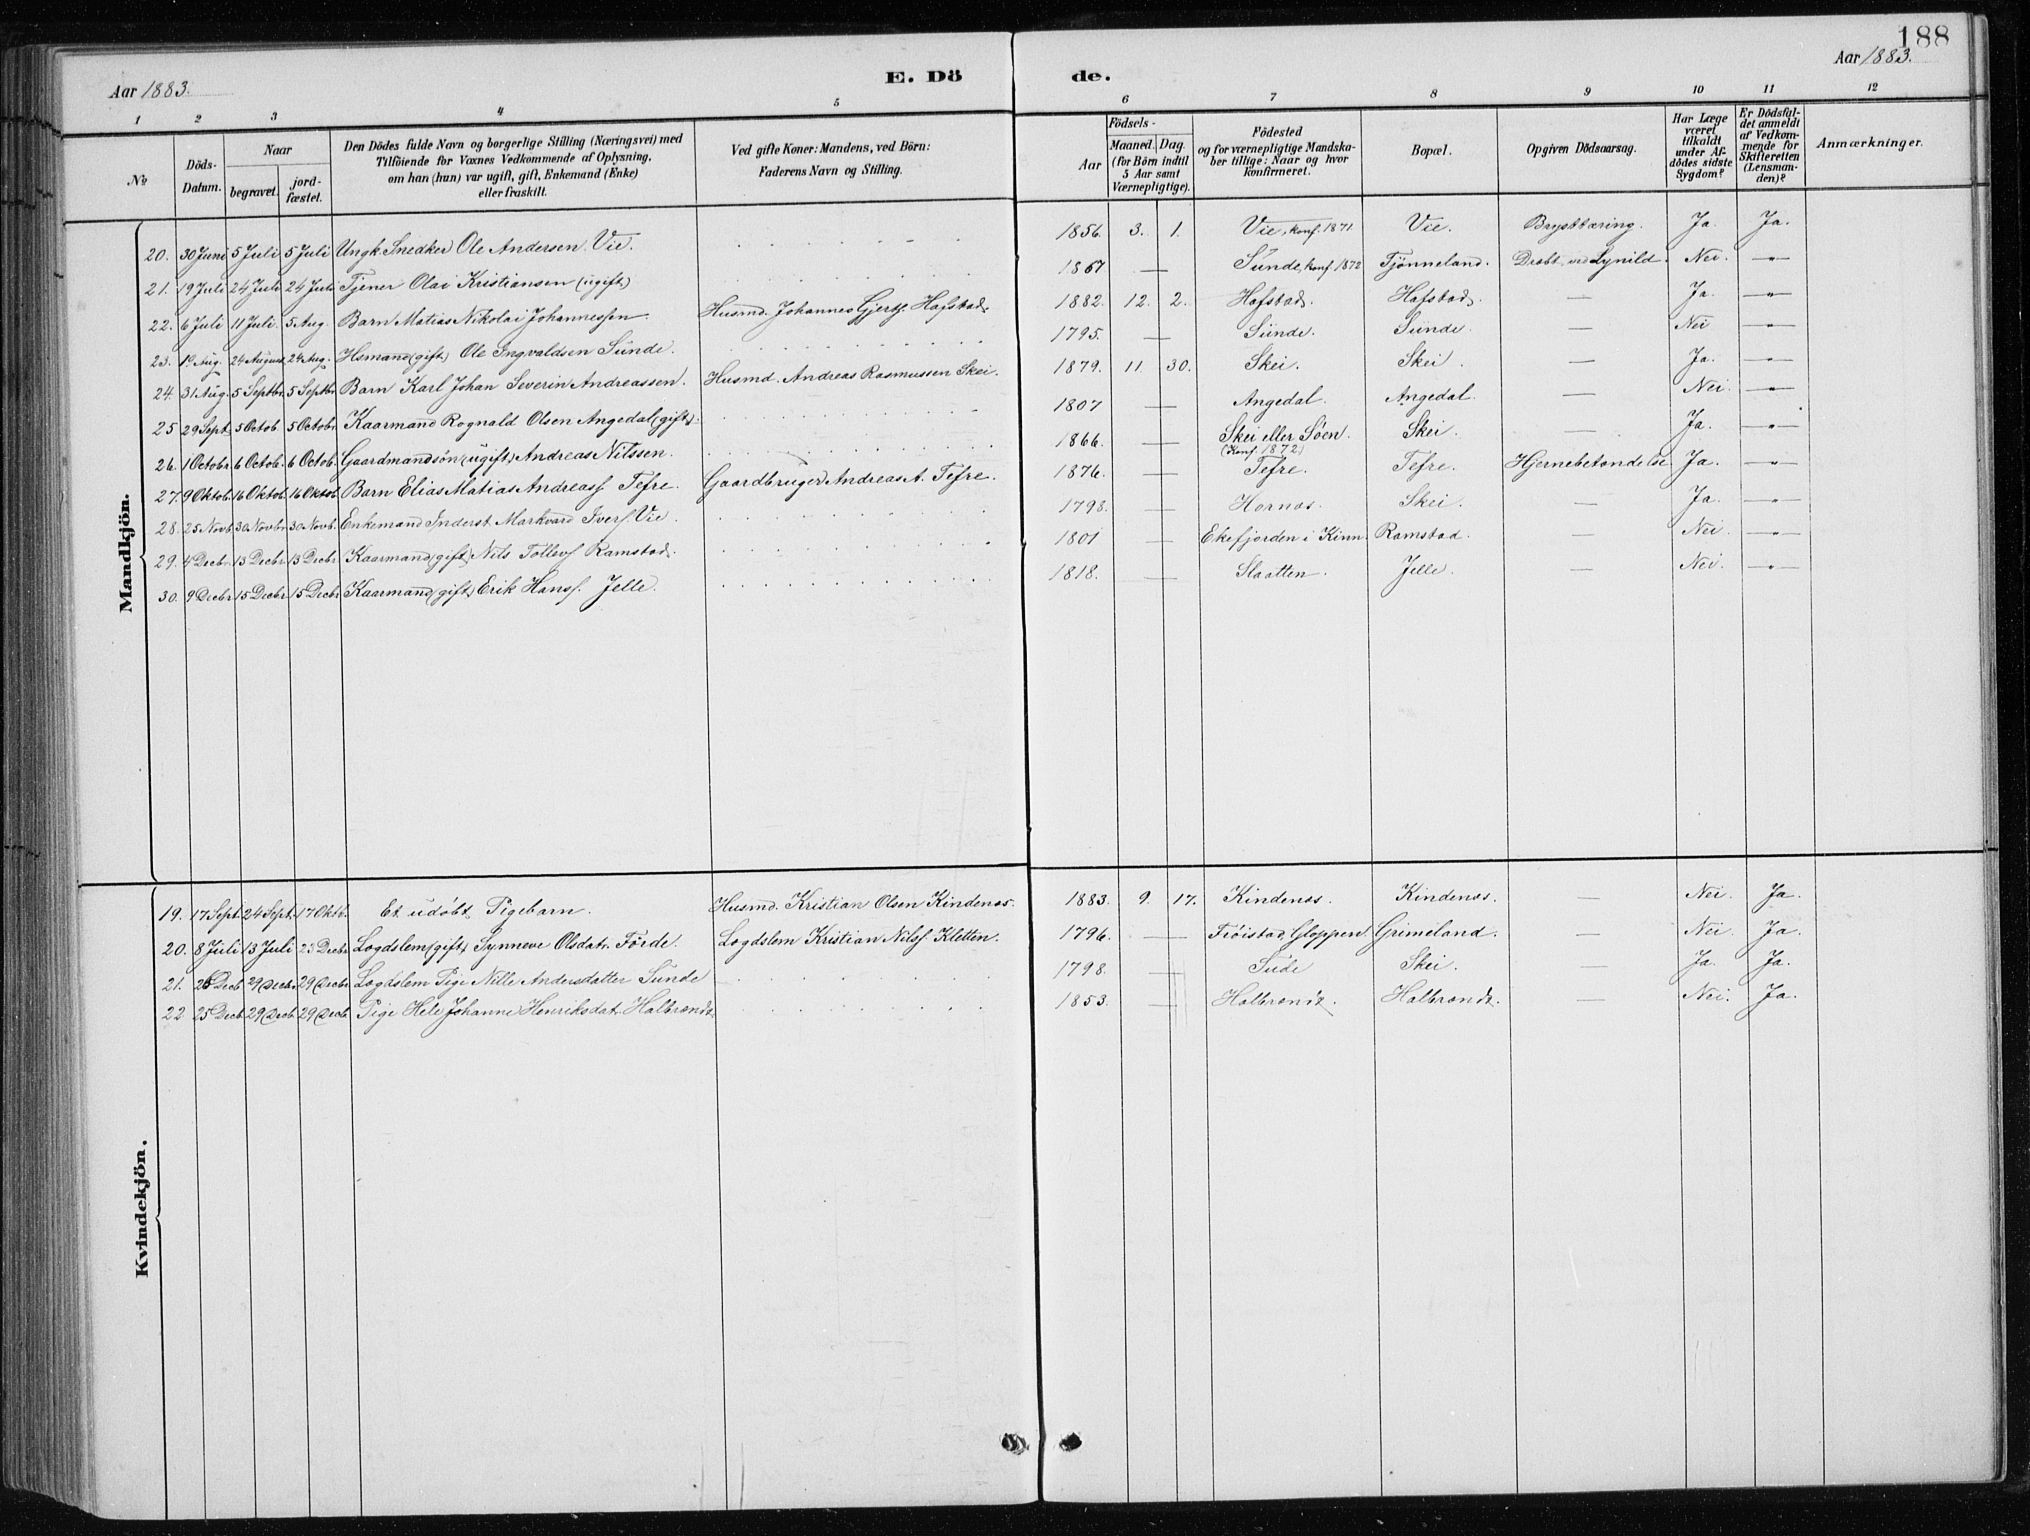 188
Aar 1883.
E. Dö
de.
Aar 1883.
1 2 3 4 5 6 7 8 9 10 11 12
No
Döds-Datum.
Naar
begravet.
jord-fæstet.
Den Dödes fulde Navn og borgerlige Stilling (Næringsvei) med
Tilföiende for Voxnes Vedkommende af Oplysning,
om han (hun) var ugift, gift, Enkemand (Enke)
eller fraskilt.
Ved gifte Koner: Mandens, ved Börn:
Faderens Navn og Stilling.
Födsels-
Aar
Maaned. Dag.
(for Börn indtil
5 Aar samt
Værnepligtige).
Födested
og for værnepligtige Mandska-
ber tillige: Naar og hvor
konfirmeret.
Bopæl.
Opgiven Dödsaarsag.
Har Læge
været
tilkaldt
under Af-
dödes sidste
Sygdom?
Er Dödsfal-
det anmeldt
af Vedkom-
mende for
Skifteretten
(Lensman-
den)?
Anmærkninger.
Mandkjön.
20. 30 Juni 5 Juli 5 Juli Ungk. Snedker Ole Andersen Vie. 1856. 3. 1. Vie, konf. 1871 Vie. Brysttæring. Ja. Ja.
21. 19 Juli 24 Juli 24 Juli Tjener Olai Kristiansen (ugift) 1867 — Sunde, konf. 1872 Tjönneland. Dræbt ved Lynild. Nei. —"—
22. 6 Juli 11 Juli. 5 Aug. Barn Matias Nikolai Johannessen. Husmd. Johannes Gjertz. Hafstad. 1882. 12. 2. Hafstad. Hafstad. — Ja. —"—
23. Aug. 24 August 24 Aug. Hsmand (gift) Ole Ingvaldsen Sunde. 1795. — Sunde. Sunde. — Nei —"—
24. 31 Aug. 5 Septbr. 5 Septbr. Barn Karl Johan Severin Andreassen. Husmd. Andreas Rasmussen Skei. 1879. 11. 30. Skei. Skei. — Ja. —"—
25 29 Sept. 5 Octob 5 Octobr. Kaarmand Rognald Olsen Angedal (gift). 1807 — Angedal. Angedal. — Nei. —"—
26. 1 Octobr 6 Octob. 6 Octob. Gaardmandsön (ugift) Andreas Nilssen. 1866. — Skei eller Söen. (Konf. 1872.) Skei. — Ja. —"—
27. 9 Oktob. 16 Oktob. 16 Oktob. Barn Elias Matias Andreass Tefre. Gaardbruger Andreas A. Tefre. 1876. — Tefre. Tefre. Hjernebetændelse. Ja. —"—
28. 25 Novb. 30 Novbr. 30 Novb. Enkemand Inderst Markvard Ivers. Vie. 1798. — Hornæs. Skei. — Ja. —"—
29. 4 Decbr. 13 Decbr 13 Decbr Kaarmand (gift) Nils Tollevs Ramstad. 1801 — Ekefjorden i Kinn. Ramstad. — Nei. —"—
30. 9 Decbr 15 Decbr 15 Decbr Kaarmand (gift) Erik Hanss. Jelle. 1818. — Slaatten. Jelle. — Nei. —"—
Kvindekjön.
19. 17 Sept. 24 Sept. 17 Oktb. Et udöbt Pigebarn. Husmd. Kristian Olsen Kindenæs. 1883. 9. 17. Kindenæs. Kindenæs. — Nei. Ja.
20. 8 Juli 13 Juli 23 Decbr Lægdslem (gift) Synneve Olsdat. Förde. Lægdslem Kristian Nilss. Kletten. 1796. — Fröistad, Gloppen. Grimeland. — Nei. Ja.
21. 26 Decb 29 Decbr. 29 Decbr Lægdslem Pige Nille Andersdatter Sunde 1798. — Sude Skei. — Ja. Ja.
22 25 Decb. 29 Decb. 29 Decb. Pige Hele Johanne Henriksdat. Halbrendt. 1853. — Halbrendt. Halbrendt. — Nei. Ja.